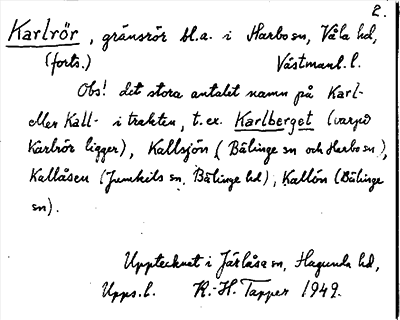 2.
Karlrör, gränsrör bl.a. i Harbo sn, Våla hd,
(forts.) Västmanl. l.
Obs! det stora antalet namn på Karl-
eller Kall- i trakten, t.ex. Karlberget (varpå
Karlrör ligger), Kallsjön (Bälinge sn och Harbo sn),
Kallåsen (Jumkils sn, Bälinge hd), Kallön (Bälinge
sn).
Upptecknat i Järlåsa sn, Hagunda hd,
Upps. l. R.-H. Tapper 1949.